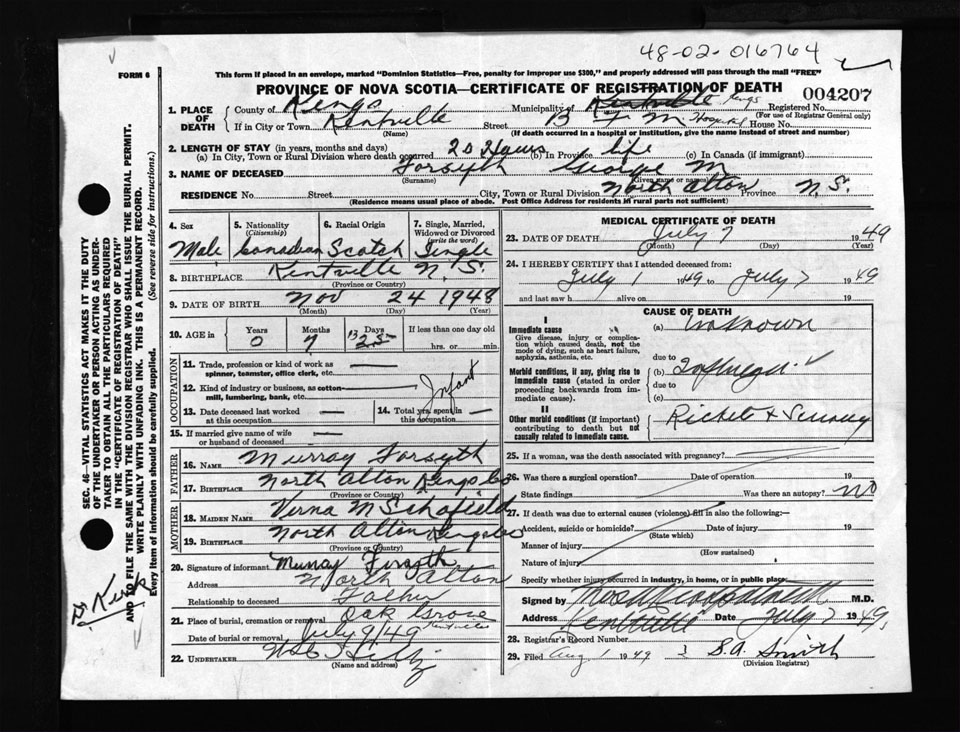 48-02-016764
FORM 6
This form if placed in an envelope, marked "Dominion Statistics—Free, penalty for improper use $300," and properly addressed will pass through the mail "FREE"
PROVINCE OF NOVA SCOTIA—CERTIFICATE OF REGISTRATION OF DEATH 004207
1. PLACE OF DEATH County of Kings Municipality of Kentville Kings Registered No.
(For use of Registrar General only)
If in City or Town Kentville Street B F M Hospital House No.
(Name) (If death occurred in a hospital or institution, give the name instead of street and number)
2. LENGTH OF STAY (in years, months and days)
(a) In City, Town or Rural Division where death occurred 20 Hours (b) In Province life (c) In Canada (if immigrant)
3. NAME OF DECEASED Forsyth George M
(Surname) (Given name or names)
RESIDENCE No. Street City, Town or Rural Division North Alton Province N.S.
(Residence means usual place of abode. Post Office Address for residents in rural parts not sufficient)
4. Sex Male
5. Nationality (Citizenship) Canadian
6. Racial Origin Scotch
7. Single, Married, Widowed or Divorced (write the word) Single
8. BIRTHPLACE Kentville N.S.
(Province or Country)
9. DATE OF BIRTH Nov 24 1948
(Month) (Day) (Year)
10. AGE in Years 0 Months 7 Days 13 25 If less than one day old
hrs. or min.
OCCUPATION
11. Trade, profession or kind of work as —
spinner, teamster, office clerk, etc.
12. Kind of industry or business, as cotton-mill, lumbering, bank, etc. — Infant
13. Date deceased last worked at this occupation —
14. Total yrs. spent in this occupation —
15. If married give name of wife or husband of deceased —
FATHER
16. NAME Murray Forsyth
17. BIRTHPLACE North Alton Kings Co
(Province or Country)
MOTHER
18. MAIDEN NAME Verna M Schofield
19. BIRTHPLACE North Alton Kings Co
(Province or Country)
20. Signature of informant Murray Forsyth
Address North Alton
Relationship to deceased Father
21. Place of burial, cremation or removal Oak Grove Kentville
Date of burial or removal July 9/49
22. UNDERTAKER
(Name and address)
MEDICAL CERTIFICATE OF DEATH
23. DATE OF DEATH July 7 1949
(Month) (Day) (Year)
24. I HEREBY CERTIFY that I attended deceased from:
July 1 1949 to July 7 1949
and last saw h alive on 19
CAUSE OF DEATH
I
Immediate cause (a) Unknown
Give disease, injury or complication which caused death, not the mode of dying, such as heart failure, asphyxia, asthenia, etc.
due to
Morbid conditions, if any, giving rise to immediate cause (stated in order proceeding backwards from immediate).
(b)
due to
(c)
II
Other morbid conditions (if important) contributing to death but not causally related to immediate cause. Rickets & Scurvy
25. If a woman, was the death associated with pregnancy?
26. Was there a surgical operation? Date of operation 19
State findings Was there an autopsy? no
27. If death was due to external causes (violence) fill in also the following:—
Accident, suicide or homicide? Date of injury 19
(State which)
Manner of injury
(How sustained)
Nature of injury
Specify whether injury occurred in industry, in home, or in public place.
Signed by M.D.
Address Kentville Date July 7 1949
28. Registrar's Record Number
29. Filed Aug 1 1949 S.A. Smith
(Division Registrar)
SEC. 46—VITAL STATISTICS ACT MAKES IT THE DUTY
OF THE UNDERTAKER OR PERSON ACTING AS UNDER-
TAKER TO OBTAIN ALL THE PARTICULARS REQUIRED
IN THE "CERTIFICATE OF REGISTRATION OF DEATH"
AND TO FILE THE SAME WITH THE DIVISION REGISTRAR WHO SHALL ISSUE THE BURIAL PERMIT.
WRITE PLAINLY WITH UNFADING INK. THIS IS A PERMANENT RECORD.
Every item of information should be carefully supplied. (See reverse side for instructions.)
Kings